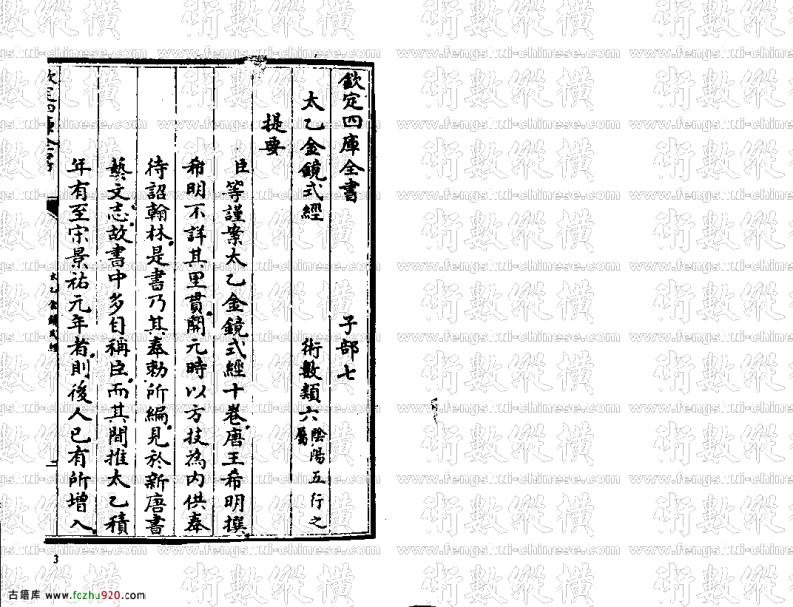 欽定四庫全書　子部七
太乙金鏡式經　術數類六陰陽五行之屬
提要
臣等謹案太乙金鏡式經十卷唐王希明撰
希明不詳其里貫開元時以方技為内供奉
待詔翰林是書乃其奉勅所編見於新唐書
藝文志故書中多自稱臣而其間推太乙積
年有至宋景祐元年者則後人已有所增入
欽定四庫全書
太乙金鏡式經
一
3
古籍库 www.fczhu920.com
術數縱橫
www.fengshui-chinese.com